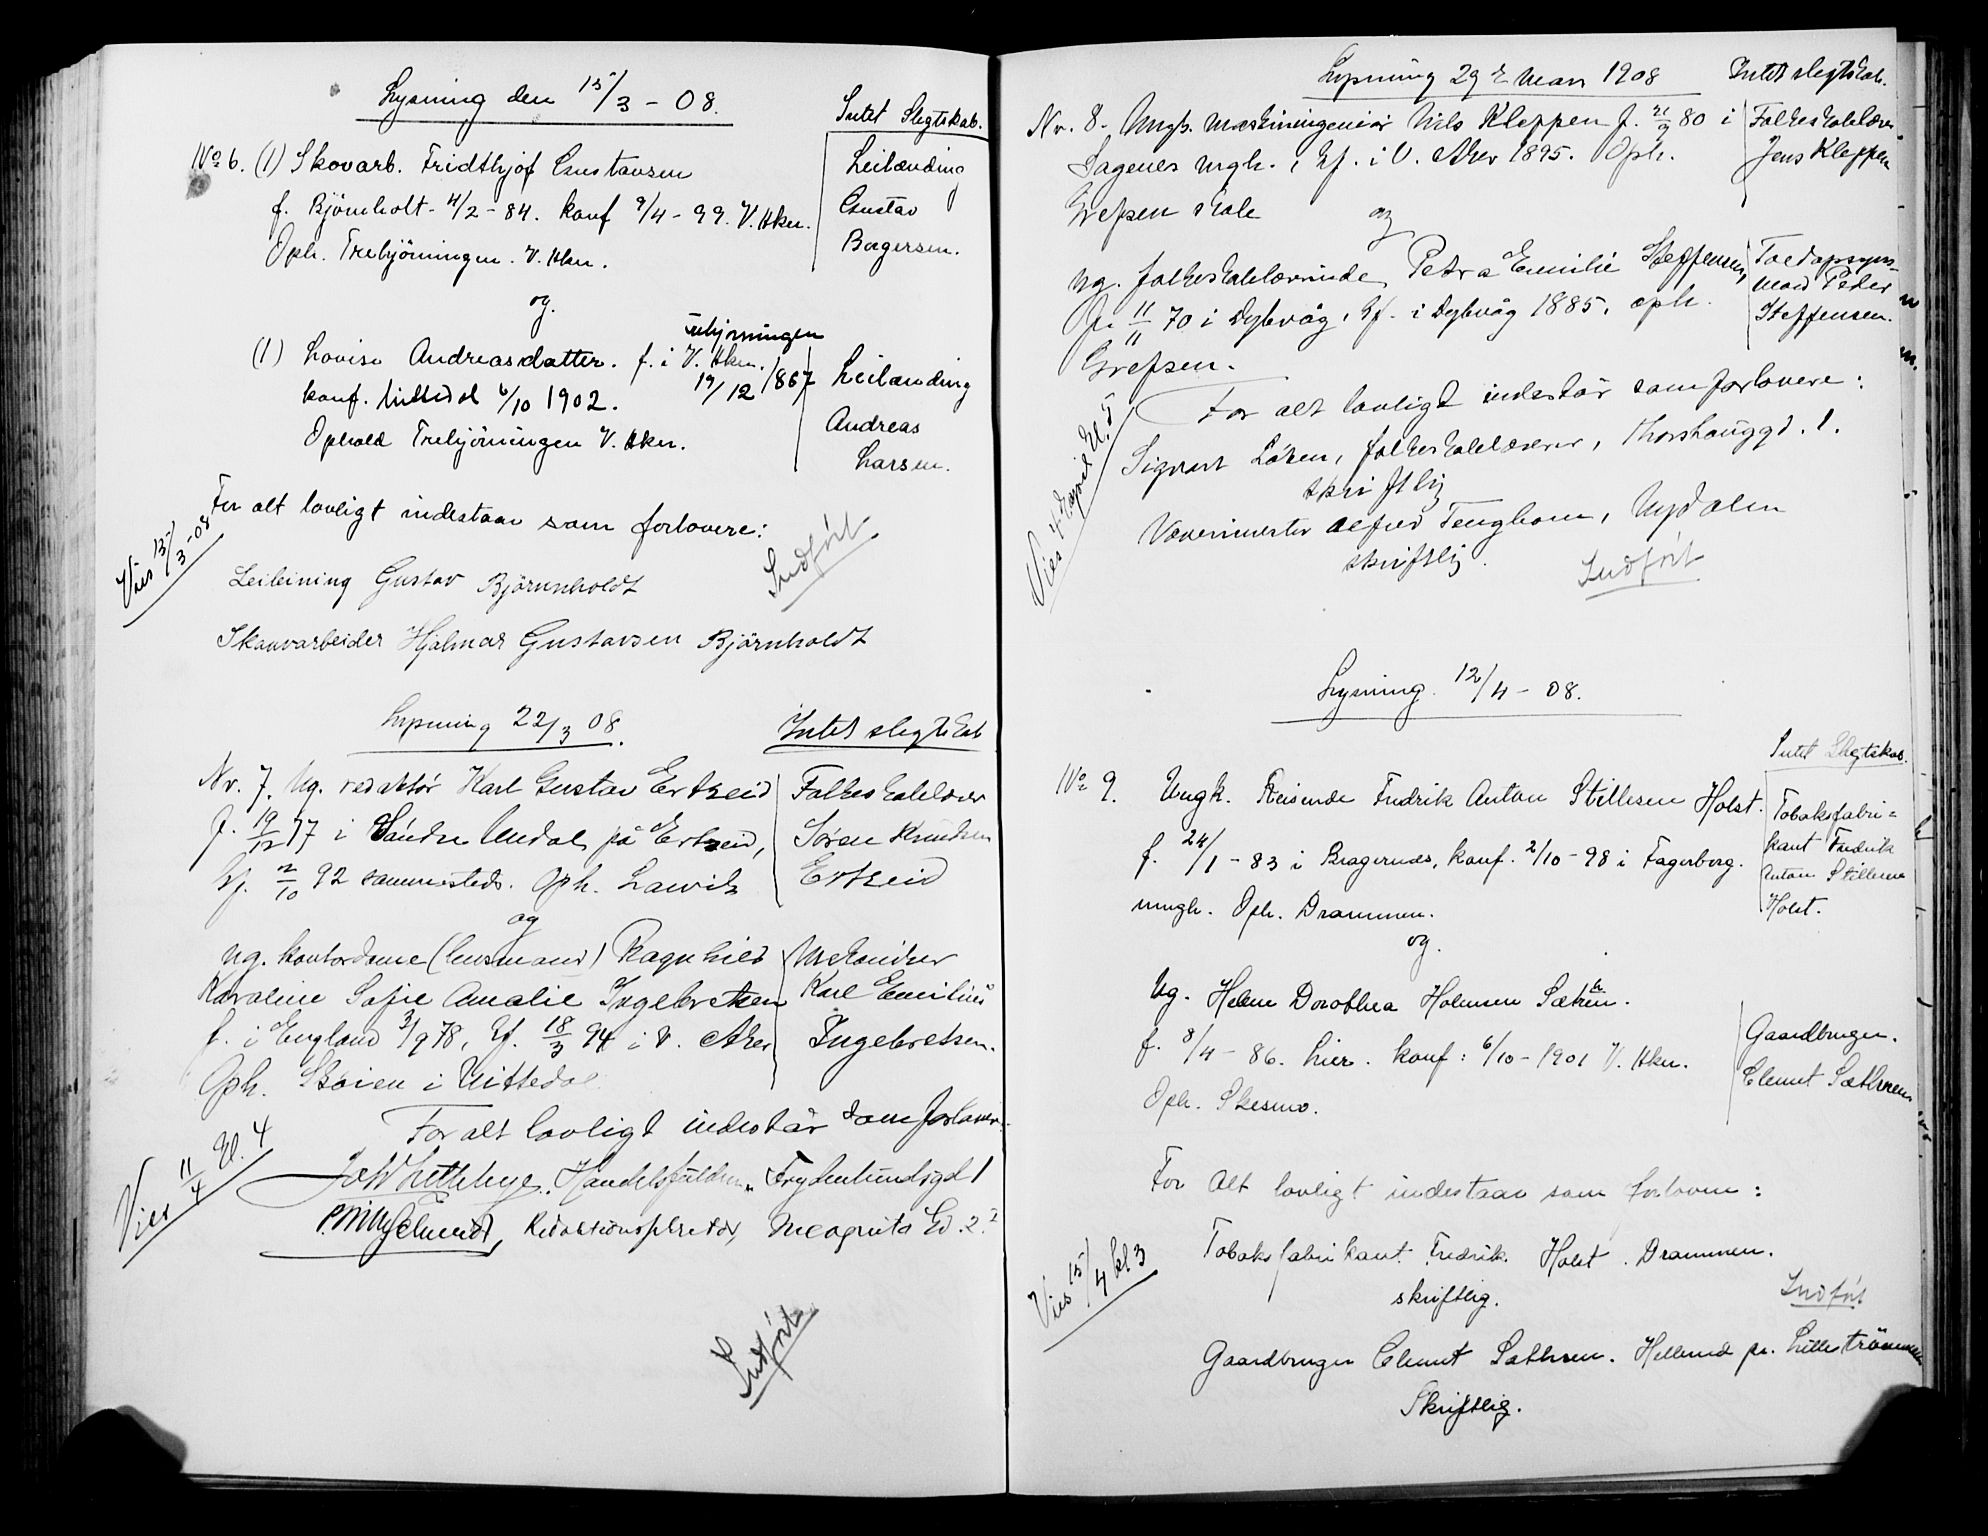 Lysning den 15/3 - 08.
Intet Slegtskab.
No 6. (1) Skovarb. Fridthjof Gustavsen
f. Björnholt - 4/2 - 84. konf 9/4 - 99. V. Aker.
Oph. Trehjörningen. V. Aker.
Leilænding
Gustav
Borgersen.
og.
Trehjörningen
(1) Lovise Andreasdatter. f. i V. Aker.
19/12 1867
konf. Nittedal 6/10 1902.
Ophold Trehjörningen V. Aker.
Leilænding
Andreas
Larsen.
For alt lovligt indestaar som forlovere:
Vies 15/3-08
Indfört
Leilening Gustav Björnholdt
Skauvarbeider Hjalmar Gustavsen Björnholdt
Lysning 22/3 08.
Intet slegtskab
Nr. 7. Ug. redaktör Karl Gustav Ertzeid
f. 19/12 77 i Söndre Undal på Ertzeid,
kf. 2/10 92 sammesteds. Oph. Larvik
Folkeskolelærer
Sören Knudsen
Ertzeid
og
Ug. kontordame (lensmand) Ragnhild
Karoline Sofie Amalie Ingebretsen
f. i England 3/9 78, kf. 18/3 94 i V. Aker
Oph. Sköien i Nittedal
Mekaniker
Karl Emilius
Ingebretsen.
For alt lovligt indestår som forlovere:
Vies 11/4 Kl. 4
Handelsfuldm., Frydenlundsgd 1
Redaktionssekretær, Incognito Gd. 2.
Indfört
Lysning 29de Mars 1908
Intet slegtskab.
Nr. 8. Ungk. Maskiningeniör Nils Kleppen f. 21/9 80 i
Sagenes mgh., kf. i V. Aker 1895. Oph.
Grefsen skole
Folkeskolelærer
Jens Kleppen
og
Ug. folkeskolelærerinde Petra Emilie Steffensen,
f. 11/11 70 i Dybvåg, kf. i Dybvåg 1885, oph.
Grefsen.
Toldopsyns-
mand Peder
Steffensen.
For alt lovligt indestår som forlovere:
Vies 4 April Kl. 5
Sigvart Löken, folkeskolelærer, Thorshauggd. 1.
skriftlig
Vævermester Alfred Tengbom, Nydalen
skriftlig.
Indfört
Lysning. 12/4 - 08.
Intet Slegtskab.
No 9. Ungk. Reisende Fredrik Anton Stillesen Holst.
f. 24/1 - 83 i Bragernes, konf. 2/10 - 98 i Fagerborg.
mngh. Oph. Drammen.
Tobaksfabri=
kant Fredrik
Anton Stillesen
Holst.
og.
Ug. Helene Dorothea Holmsen Sæthren.
f. 8/4 - 86. hier. konf: 6/10 - 1901 V. Aker.
Oph. Skesmo.
Gaardbruger.
Clemet Sæthren
For Alt lovligt indestaar som forlovere:
Tobaksfabrikant. Fredrik Holst. Drammen.
skriftlig.
Vies 15/4 kl 3
Indfört
Gaardbruger Clemet Sæthren. Hellerud pr. Lilleströmmen
Skriftlig.